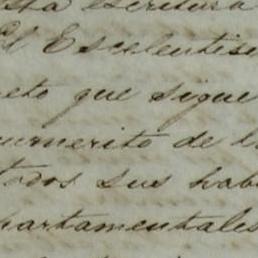 esta escritura
El Escelentiso
reto que sigue
cumerito de l
todos sus hab
partamentales